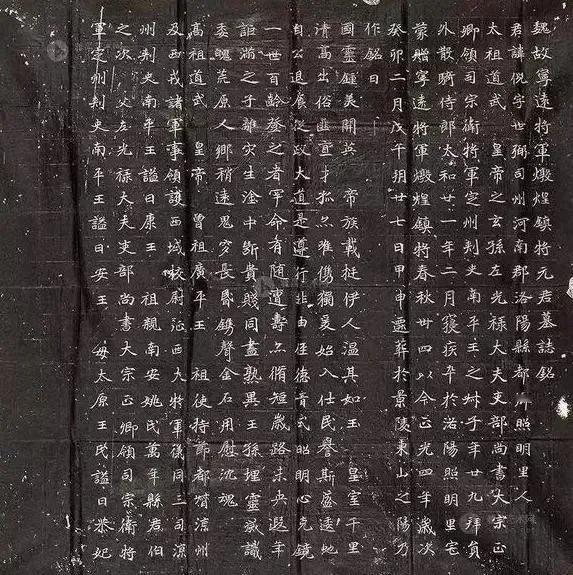 魏故寧遠將軍燉煌鎮將元君墓誌銘
君諱倪字世弼司州河南郡洛陽縣都鄉照明里人
太祖道武 皇帝之玄孫左光祿大夫吏部尚書大宗正
卿領司宗衛將軍定州刺史南平王之叔子年廿九拜員
外散騎侍郎太和廿一年二月寢疾卒於洛陽照明里宅
蒙贈寧遠將軍燉煌鎮將春秋卌四以今正光四年歲次
癸卯二月戊午朔廿七日甲申遷葬於景陵東山之陽乃
作銘曰
國靈鍾美開英 帝族載挺伊人溫其如玉 皇室千里
清高出俗匪宣才孤亦唯儁獨爰始入仕民譽斯盛逶地
自公退展從政大道是遵行非由徑德音式昭明心克鏡
一世百齡登之者罕命有隨遭壽亦脩短歲路未央遐年
詎滿之子離灾生淦中斷貴賤同盡孰異王孫埋靈嶽識
委魄荒原人鄉稍遠鬼穸長昏鐫聲金石用慰沉魂
高祖道武 皇帝 曾祖廣平王 祖使持節都督涼州
及西戎諸軍事領護西域校尉征西大將軍儀同三司涼
州刺史南平王諡曰康王 祖親南安姚氏萬年縣君伯
之次 父左光祿大夫吏部尚書大宗正卿領司宗衛將
軍定州刺史南平王諡曰安王 母太原王氏諡曰恭妃